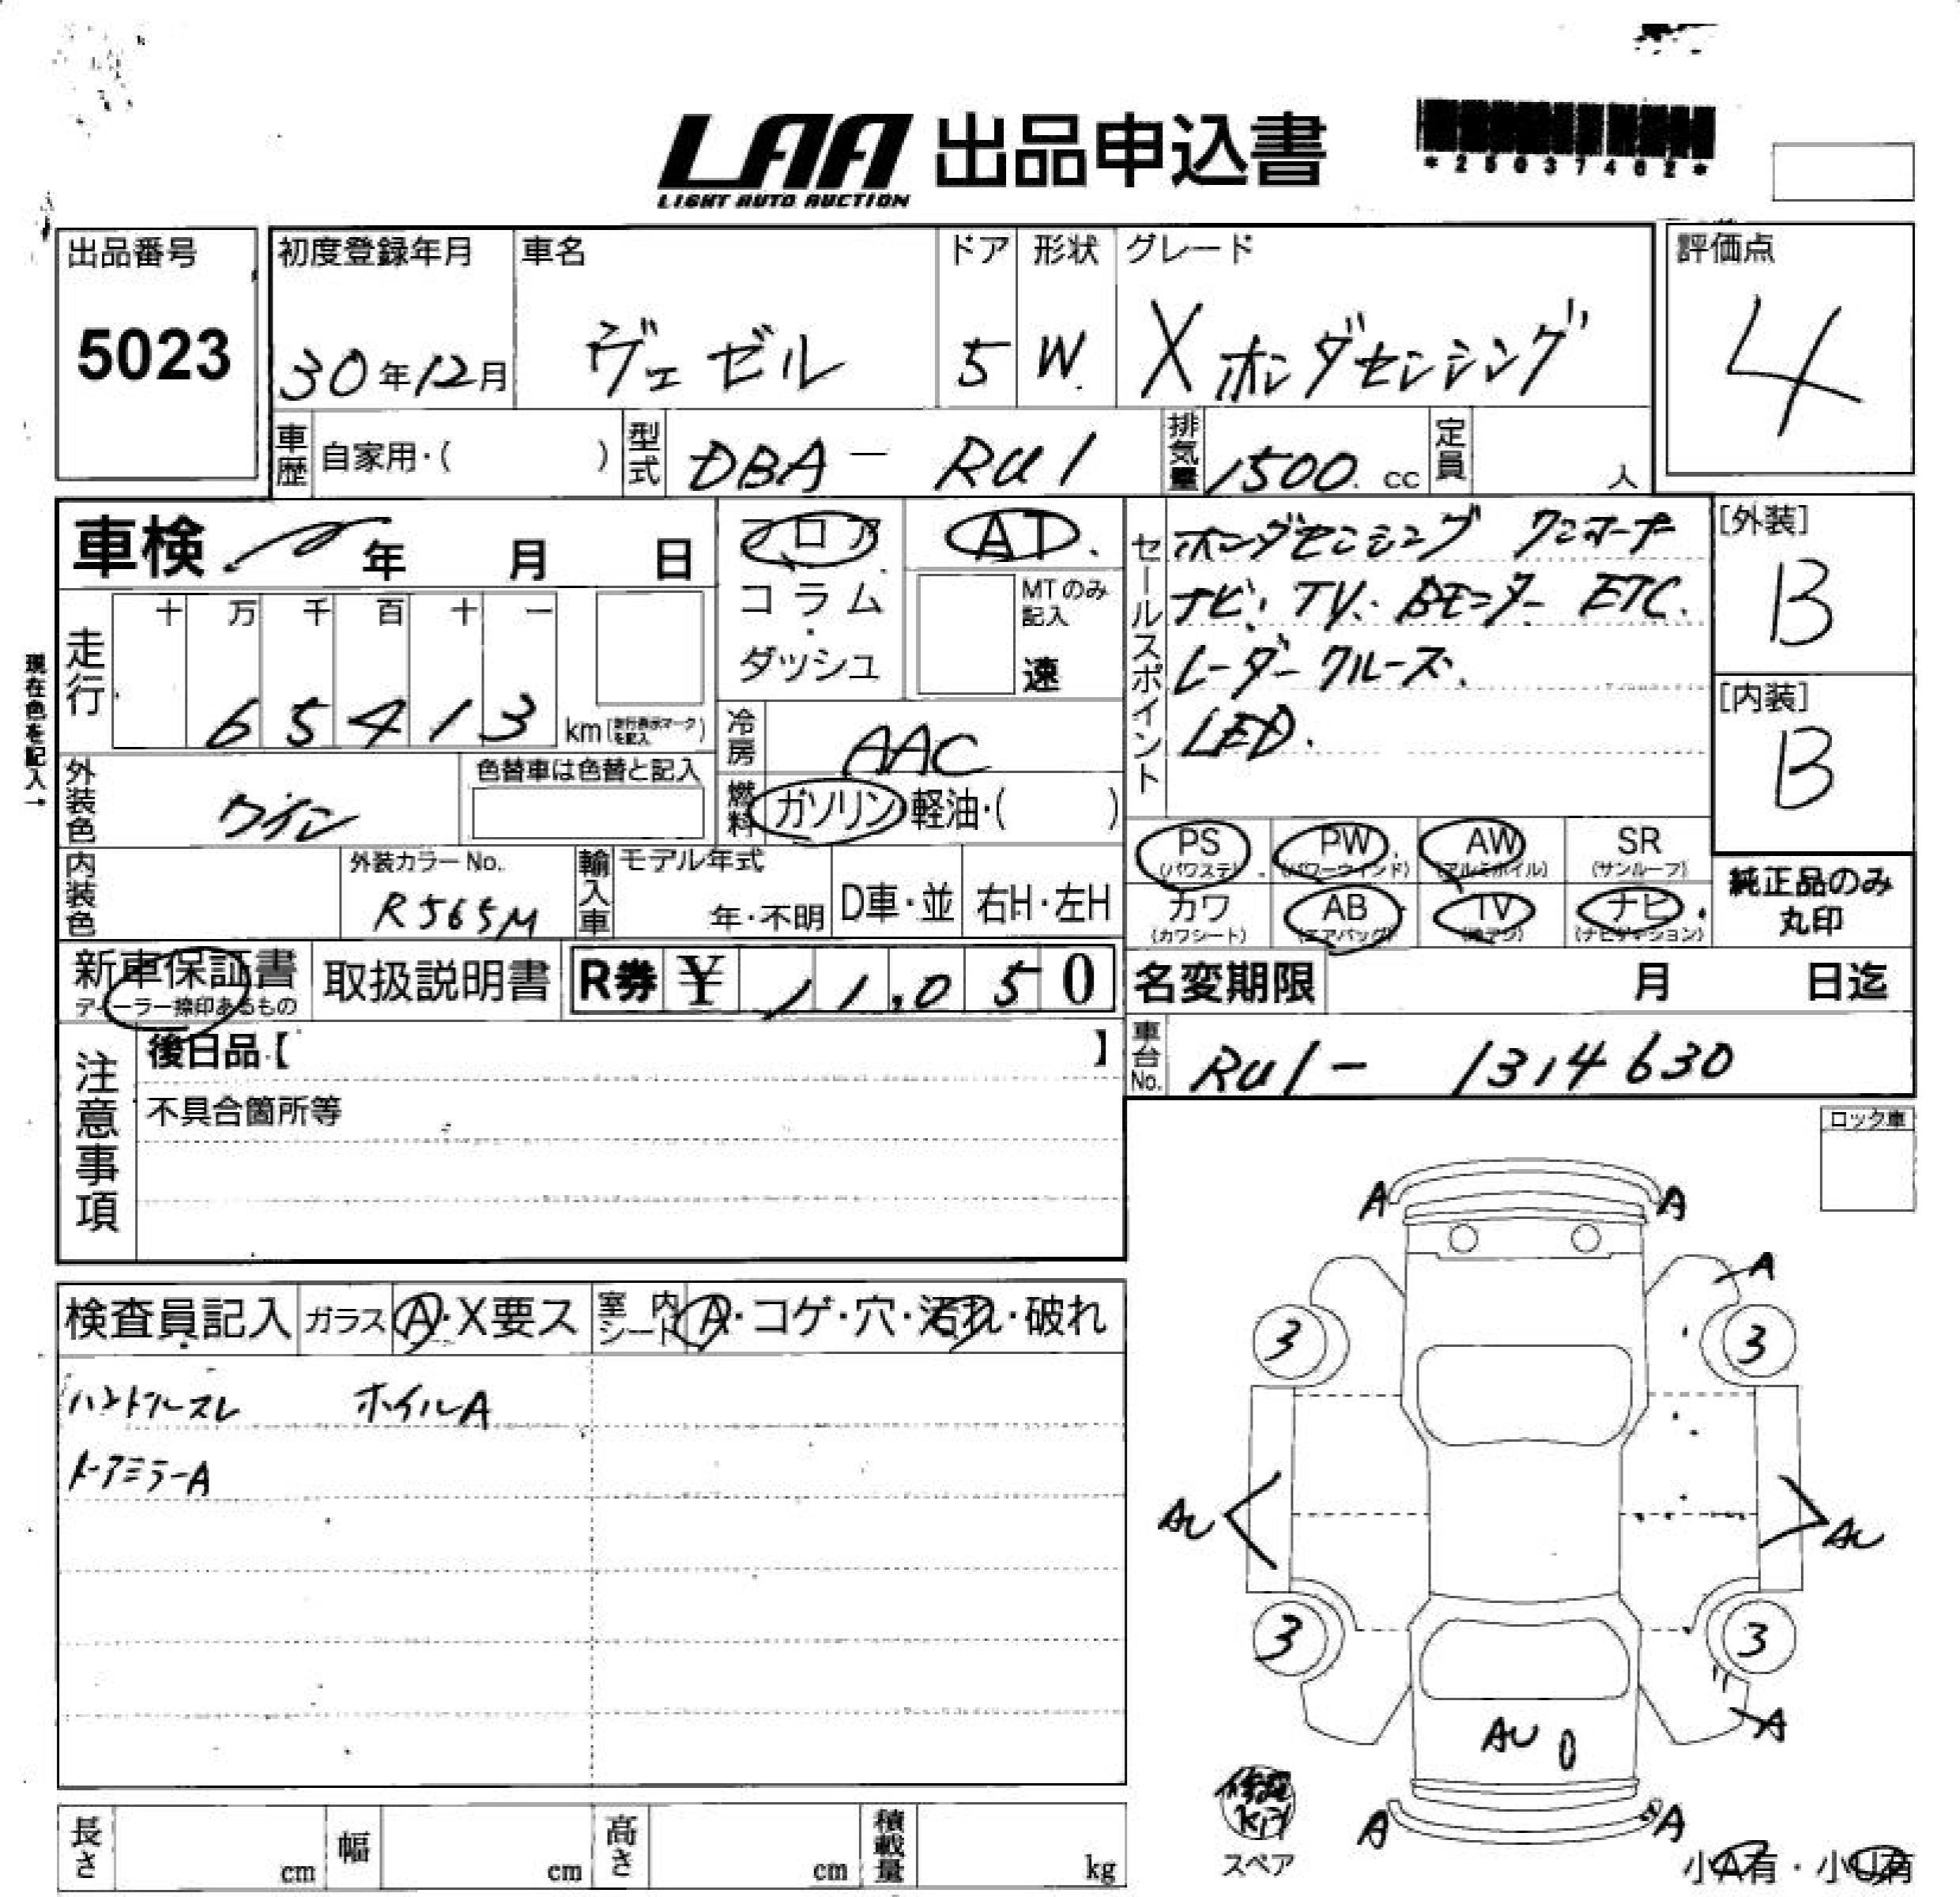 LAA 出品申込書
LIGHT AUTO AUCTION
*25037402*
出品番号
5023
初度登録年月
30年12月
車名
ヴェゼル
ドア
5
形状
W
グレード
X ホンダセンシング
評価点
4
車歴 自家用・( )
型式 DBA - RU1
排気量 1500 cc
定員 人
車検 年 月 日
フロア
コラム
・
ダッシュ
AT
MTのみ記入
速
セールスポイント
ホンダセンシング ワンオーナー
ナビ、TV、Bモニター ETC.
レーダークルーズ、
LED.
[外装]
B
[内装]
B
現在色を記入→
走行
十 万 千 百 十 一
6 5 4 1 3 km (走行表示マークを記入)
冷房 AAC
外装色 ワイン
色替車は色替と記入
燃料 ガソリン 軽油・( )
PS (パワステ)
PW (パワーウインド)
AW (アルミホイル)
SR (サンルーフ)
カワ (カワシート)
AB (エアバッグ)
TV (地デジ)
ナビ (ナビゲーション)
純正品のみ
丸印
内装色
外装カラーNo.
R565M
輸入車
モデル年式
年・不明
D車・並
右H・左H
新車保証書
ディーラー捺印あるもの
取扱説明書
R券 ¥ 11,050
名変期限 月 日迄
車台No. RU1- 1314630
注意事項
後日品【 】
不具合箇所等
ロック車
検査員記入
ガラス A・X要ス
室内シート A・コゲ・穴・汚れ・破れ
ハンドルスレ ホイルA
ドアミラーA
A A
A
3 3
AU AU
3 3
A
AU
A A
修理Kit
スペア
小A有・小U有
長さ cm
幅 cm
高さ cm
積載量 kg